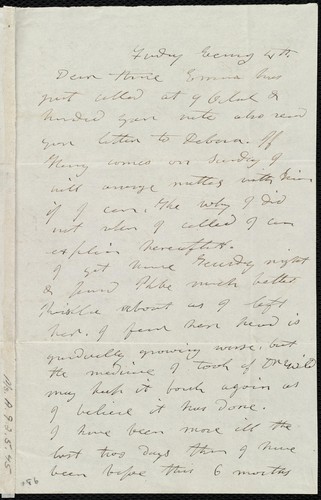 Friday Evening 4th.
Dear Anne Emma has
just called at 9 O'clock &
handed your note also read
your letter to Debora. If
Mary comes on Sunday I
will arrange matters with
if I can. The why I did
not when I called I can
explain hereafter.
I got home Thursday night
& found Phbe much better
about as I left
her. I fear her head is
gradually growing worse. but
the medicine I took of Dr Wild
may keep it back again as
I believe it has done.
I have been more ill the
last two days than I have
been before this 6 months
Ms A 9 2 5 45